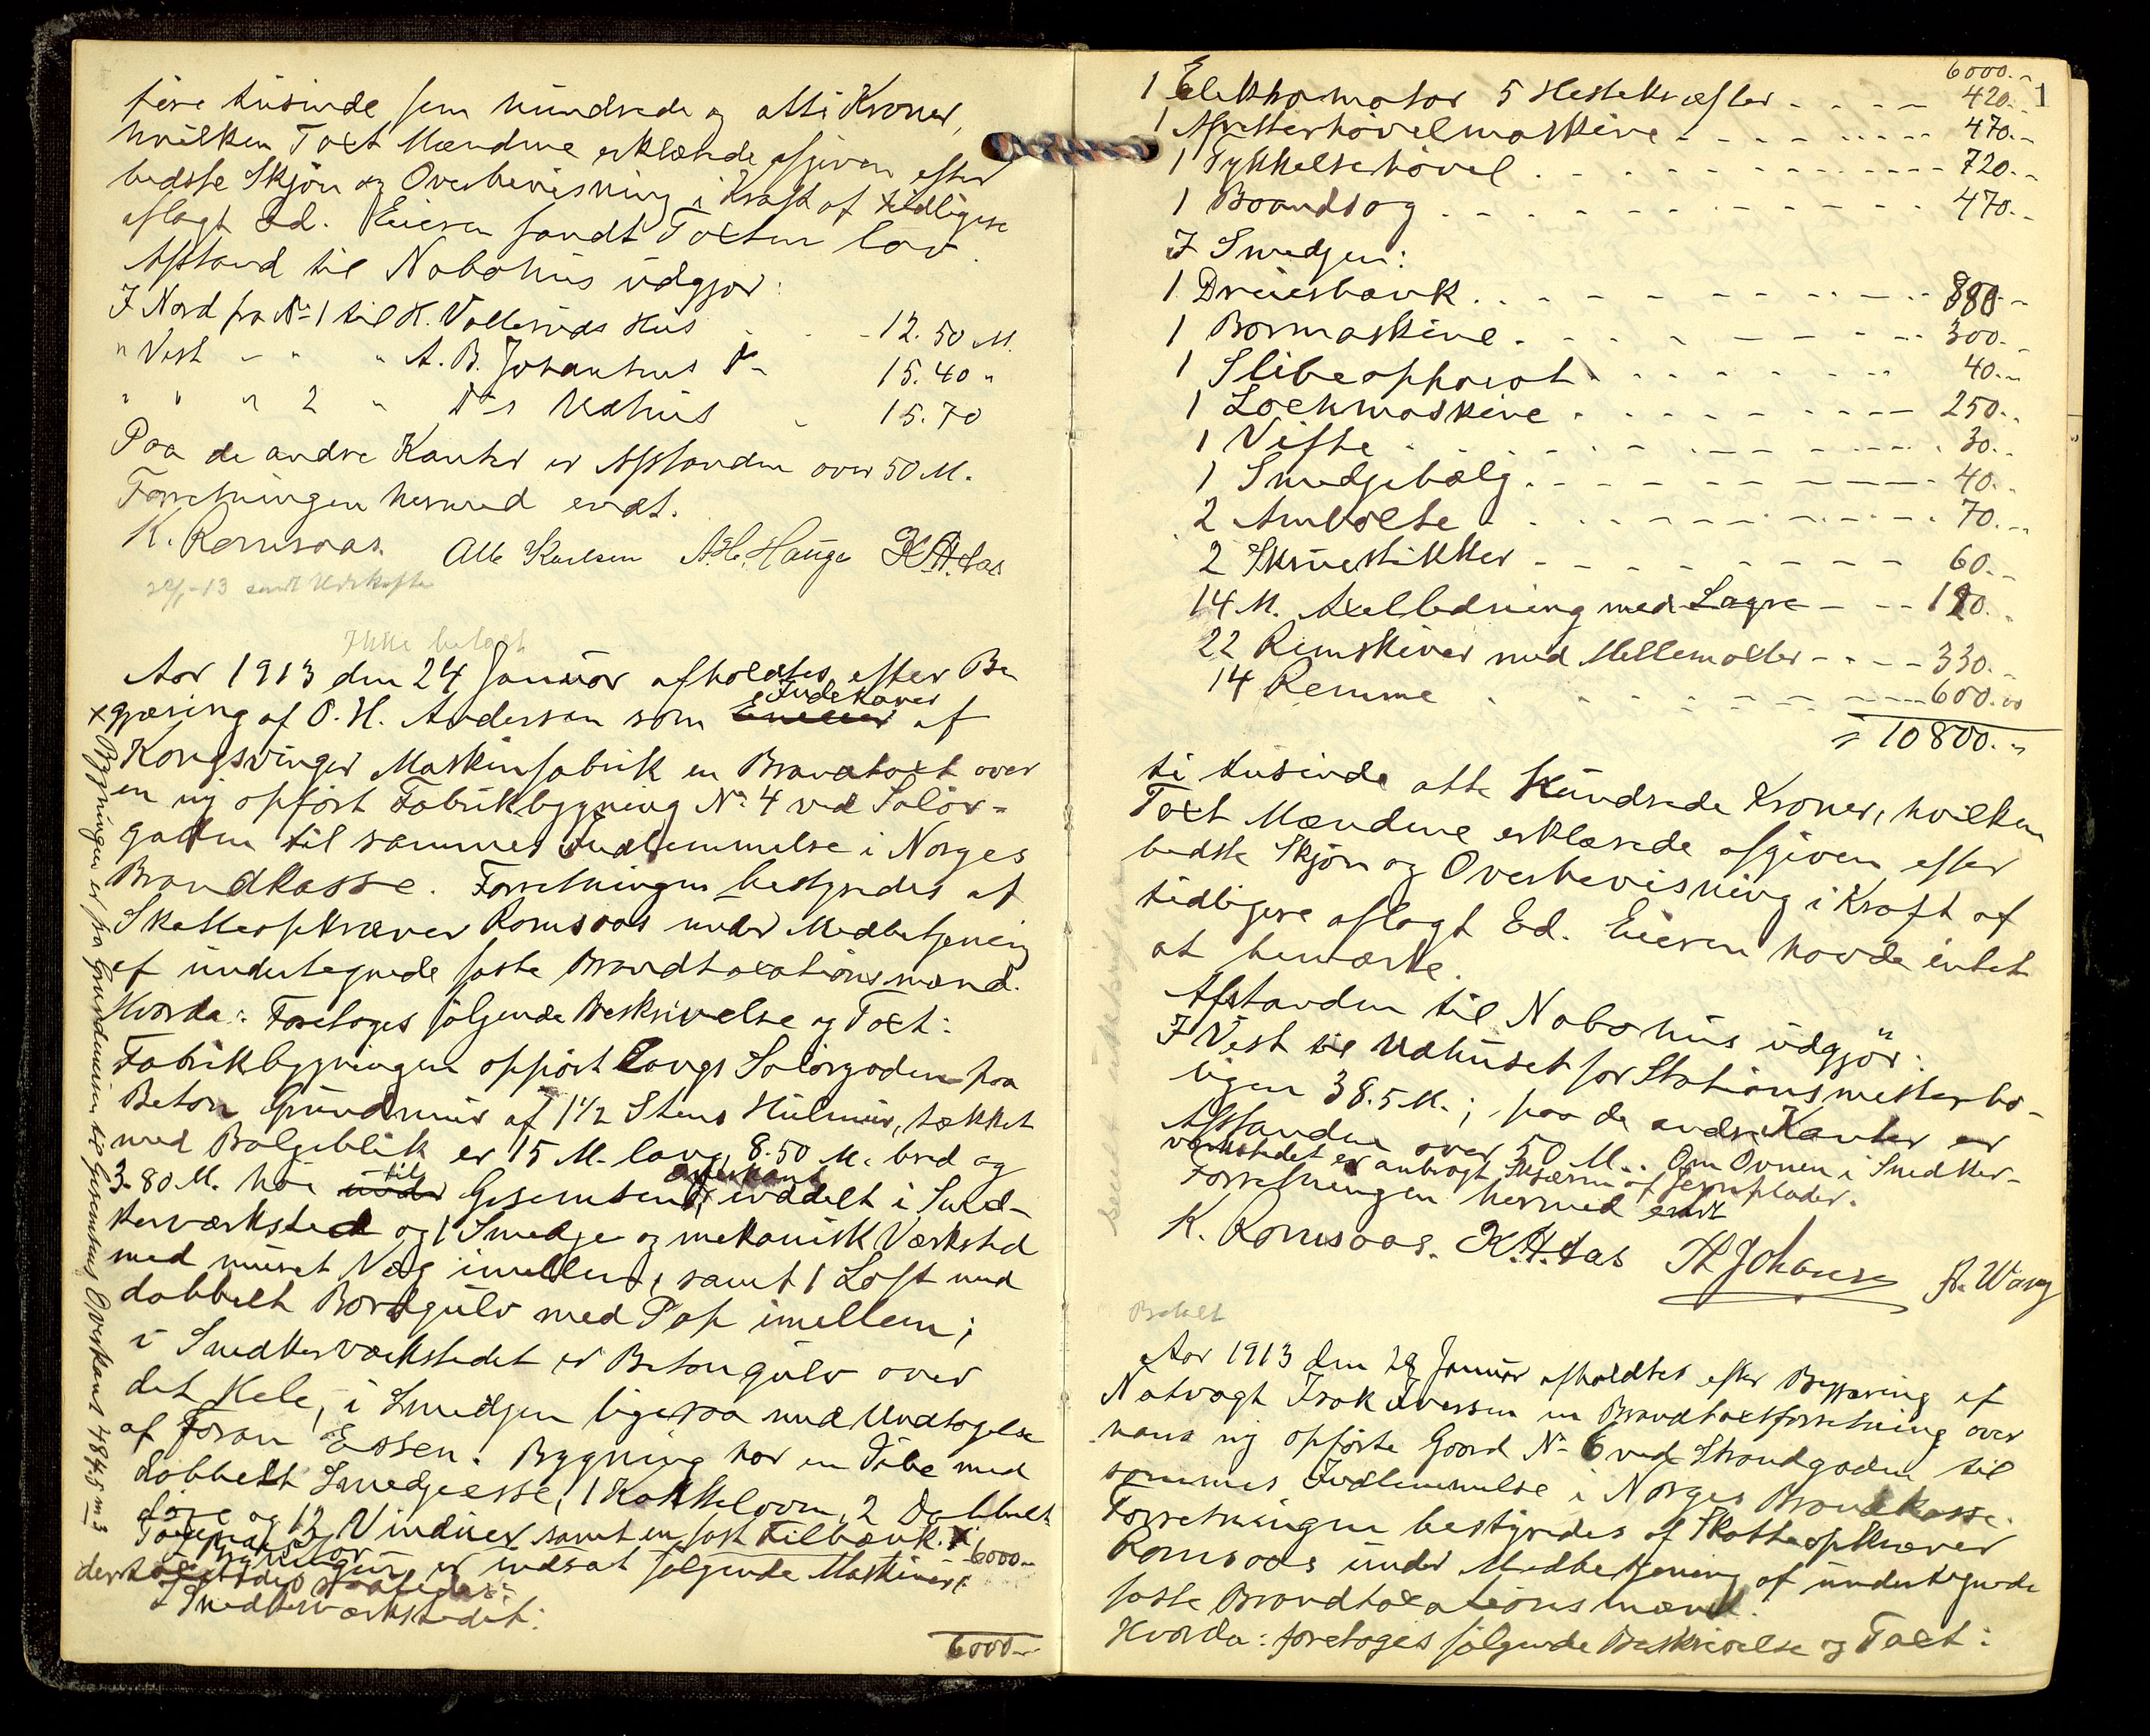 fire tusinde fem hundrede og otti Kroner,
hvilken Taxt Mændene erklærede afgiven efter
bedste Skjøn og Overbevisning i Kraft af tidligere
aflagt Ed. Eieren fandt Taxten lav.
Afstand til Nabohus udgjør:
I Nord fra No 1 til K. Vollerüds Hus - - 12.50 M.
" Vest - " " A. B. Johansens Do - 15.40 "
" " " 2 " Do s Udhus - 15.70
Paa de andre Kanter er Afstanden over 50 M.
Forretningen hermed endt.
K. Romsaas. Alb Karlsen A. H. Hauge K. A. Aas
-13 sendt Udskrifter
Ikke betalt
Aar 1913 den 24 Januar afholdtes efter Be
Indehaver
gjæring af O. H. Andersen som af
Kongsvinger Maskinfabrik en Brandtaxt over
en ny opført Fabrikbygning No 4 ved Solør-
gaden til sammes Indlemmelse i Norges
Brandkasse. Forretningen bestyredes af
Skatteopkræver Romsaas under Medbetjening
af undertegnede faste Brandtaxationsmænd.
Hvorda: Foretoges følgende Beskrivelse og Taxt:
Fabrikbygningen opført langs Solørgaden paa
Beton Grundmur af 1 1/2 Stens Hulmur, tækket
med Bølgeblik er 15 M. lang, 8.50 M. bred og
til overkant
3.80 M. høi under Gesemsen, inddelt i Sned-
kerværksted og 1 Smedje og mekanisk Værksted
med muret Væg imellem, samt 1 Loft med
dobbelt Bordgulv med Pap imellem;
i Snedkerværkstedet er Betongulv over
det Hele, i Smedjen ligesaa med Undtagelse
af foran Essen. Bygning har en Pibe med
dobbelt Smedjeesse, 1 Kakkelovn, 2 Dobbelt
døre og 12 Vinduer samt en fast Filbænk. x 6000.-
I Bygningen er indsat følgende Maskiner:
I Snedkerværkstedet:
6000.-
x Bygningen er fra Grundmuren til Gesemsens Overkant 484.5 m3
6000.-
1
1 Elektromotor 5 Hestekræfter - - - - 420.-
1 Afretterhøvelmaskine - - - - 470.-
1 Tykkelsehøvel - - - - 720.-
1 Baandsag - - - - 470.-
I Smedjen:
1 Dreiesbænk - - - - 880.-
1 Bormaskine - - - - 300.-
1 Slibeapparat - - - - 40.-
1 Lochmaskine - - - - 250.-
1 Vifte - - - - 30.-
1 Smedjebælg - - - - 40.-
2 Ambolte - - - - 70.-
2 Skruestikker - - - - 60.-
14 M. Axelledning med Lagre - - - 120.-
22 Remskiver med Mellemaxler - - - - 330.-
14 Remme - - - - 600.00
= 10800.-
ti tusinde otte Hundrede Kroner, hvilken
Taxt Mændene erklærede afgiven efter
bedste Skjøn og Overbevisning i Kraft af
tidligere aflagt Ed. Eieren havde intet
at bemærke.
Afstanden til Nabohus udgjør:
I Vest til Udhuset for Stationsmesterbo-
ligen 38.5 M.; paa de andre Kanter er
Afstanden over 50 M.. Om Ovnen i Snedker-
værkstedet er anbragt Skjærm af Jernplader.
Forretningen hermed endt
K. Romsaas. K. A. Aas H Johansen A. Wang
Betalt
Aar 1913 den 28 Januar afholdtes efter Begjæring af
Natvagt Isak Iversen en Brandtaxtforretning over
hans ny opførte Gaard No 6 ved Strandgaden til
sammes Indlemmelse i Norges Brandkasse.
Forretningen bestyredes af Skatteopkræver
Romsaas under Medbetjening af undertegnede
faste Brandtaxationsmænd.
Hvorda: foretoges følgende Beskrivelse og Taxt: